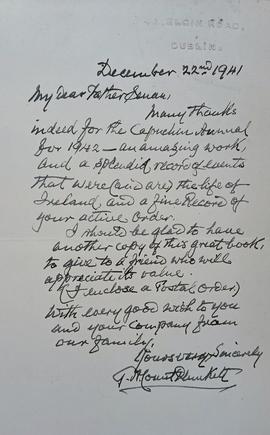 ELGIN ROAD,
DUBLIN.
December 22nd 1941
My dear Father Senan,
Many thanks
indeed for the Capuchin Annual
for 1942 — an amazing work,
and a splendid record of events
that were (and are) the life of
Ireland, and a fine Record of
your active Order.
I should be glad to have
another copy of this great book,
to give to a friend who will
appreciate its value.
(I enclose a Postal Order)
With every good wish to you
and your company from
our family,
Yours very Sincerely
G. N. Count Plunkett